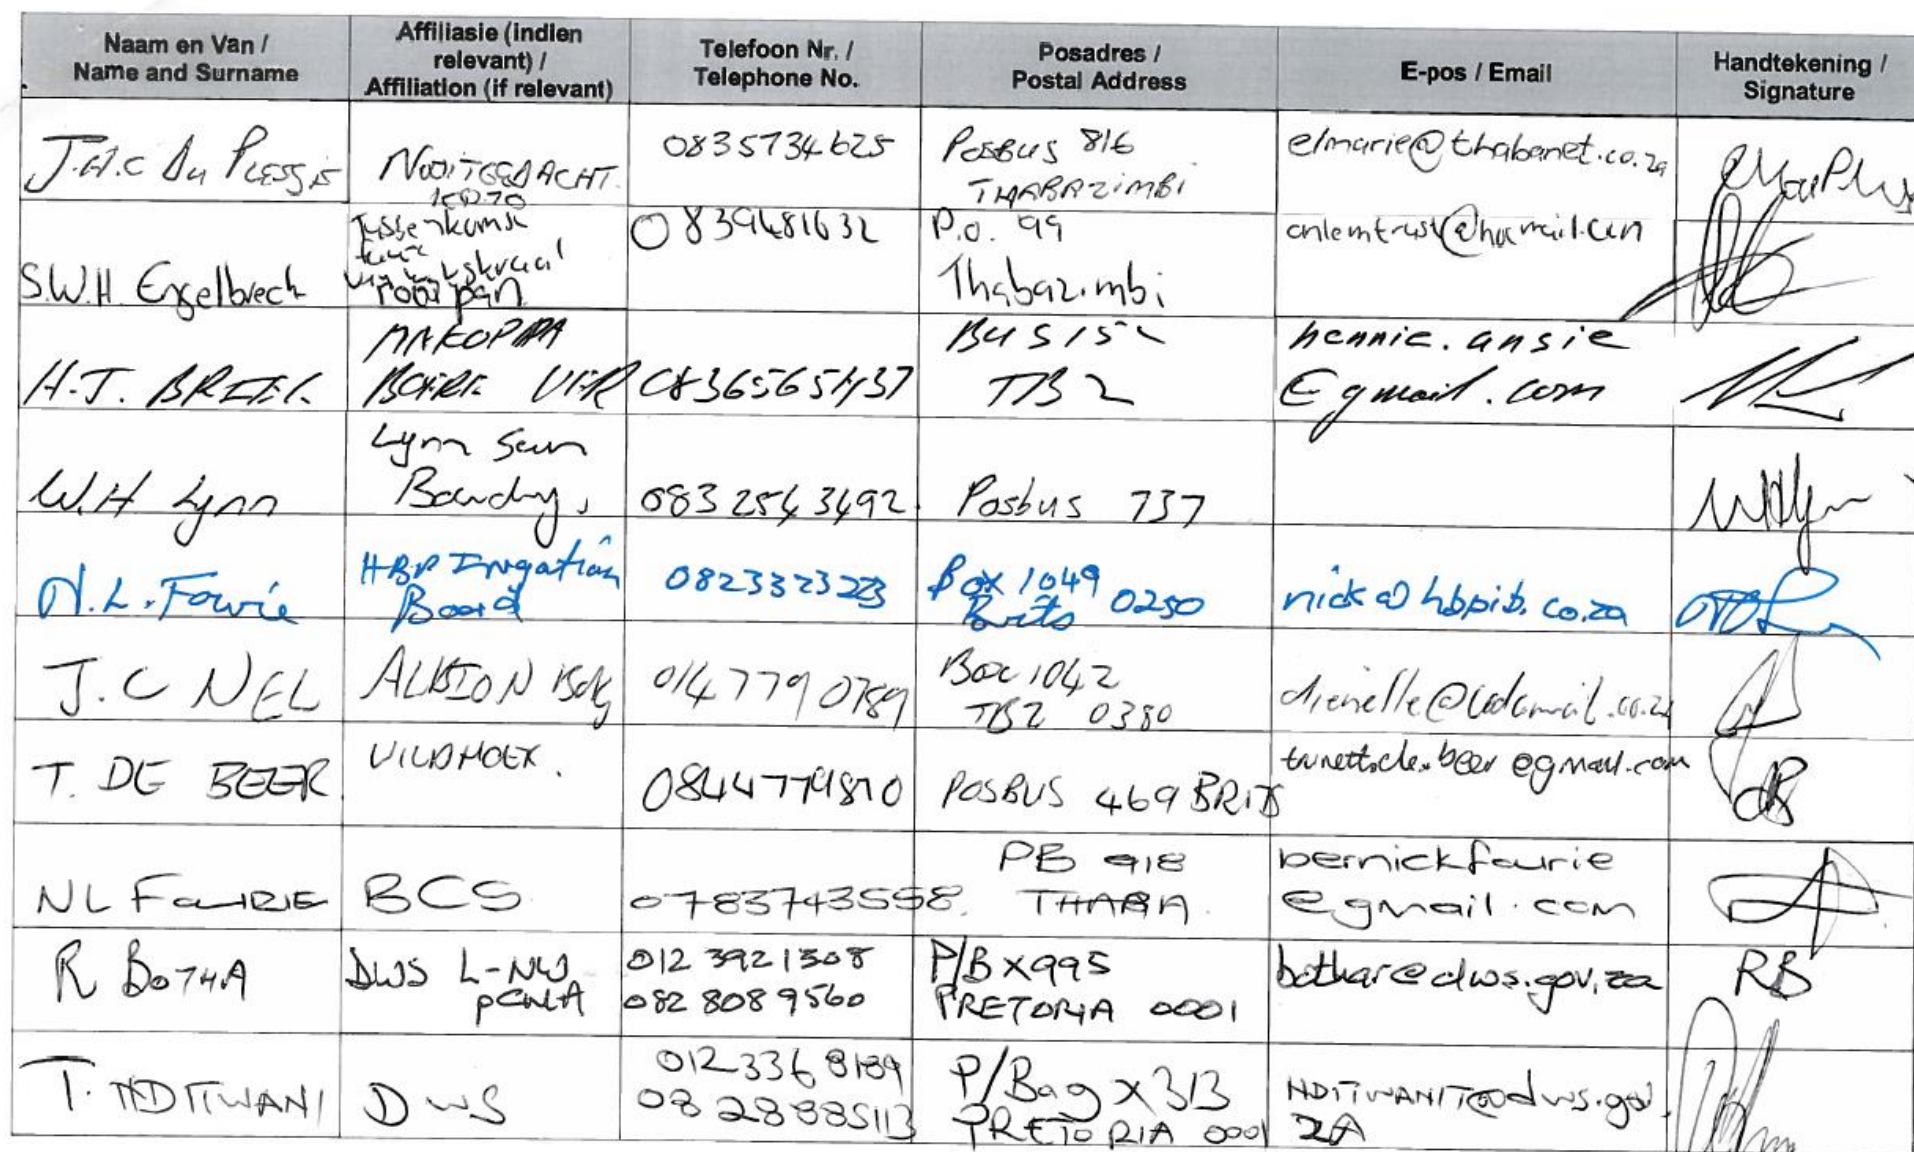 Naam en Van / Name and Surname
Affiliasie (indien relevant) / Affiliation (if relevant)
Telefoon Nr. / Telephone No.
Posadres / Postal Address
E-pos / Email
Handtekening / Signature
J.H.C Du Plessis
NOOITGEDACHT
0835734625
Posbus 816
THABAZIMBI
elmarie@thabanet.co.za
S.W.H. Engelbrech
Tussenkomst
rooipan
0839481632
P.O. 99
Thabazimbi
H.J. BRIEL
MAKOPPA
BOERE VER
0836565437
BUS 152
TBZ
hennie.ansie
@gmail.com
W.H Lynn
Lynn Seun
Boerdery
083 2543492
Posbus 737
N.L. Fourie
HBP Irrigation
Board
0823323223
Box 1049
Brits 0250
nick@hbpib.co.za
J.C NEL
ALBION
014 779 0789
Box 1042
TBZ 0380
T. DE BEER
VILDHOEK.
0844779870
POSBUS 469 BRITS
NL FOURIE
BCS
0783743558
PB 918
THABA
bernickfourie
@gmail.com
R BOTHA
DWS L-NW
PCMA
012 3921308
082 8089560
P/B X995
PRETORIA 0001
bothar@dws.gov.za
RB
T. NDITWANI
DWS
012 336 8189
082 8885113
P/Bag X313
PRETORIA 0001
NDITWANIT@dws.gov.
ZA